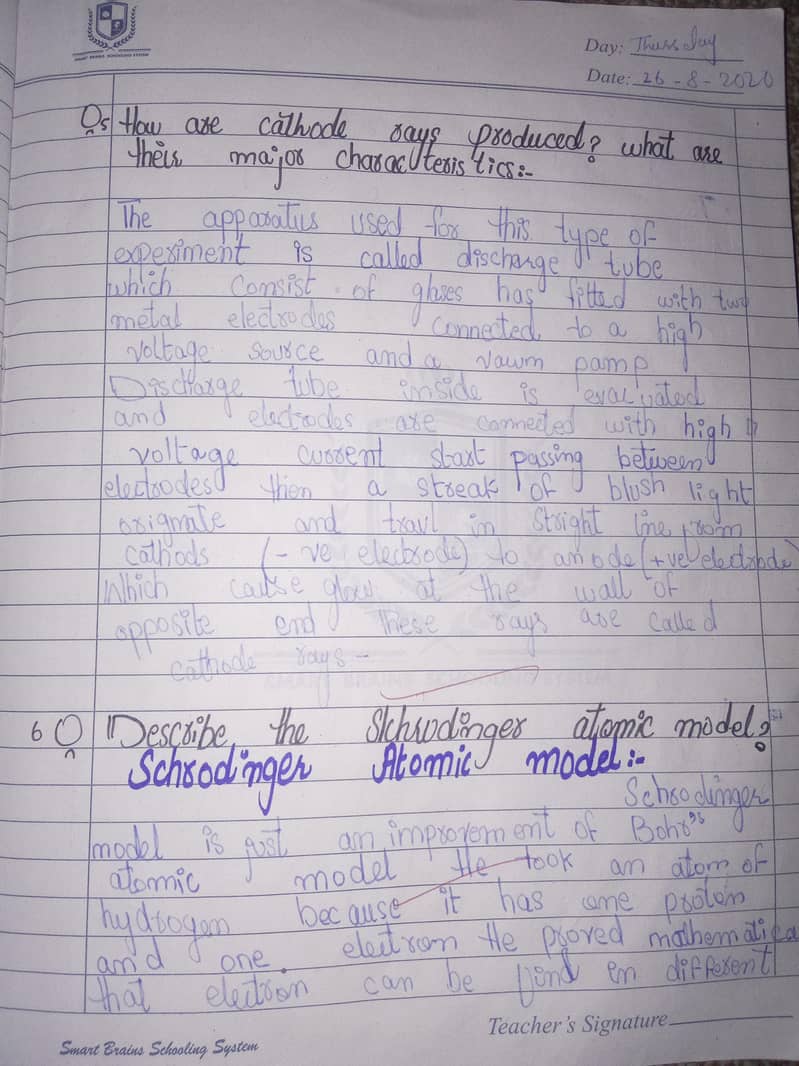 SMART BRAINS SCHOOLING SYSTEM
Day: Thursday
Date: 26-8-2020
Q5 How are cathode rays produced? what are
their major characteristics:-
The apparatus used for this type of
experiment is called discharge tube
which consist of glases has fitted with two
metal electrodes connected to a high
voltage source and a vawm pamp
Discharge tube inside is evacuated
and electrodes are connected with high
voltage current start passing between
electrodes then a streak of blush light
origmate and travl in stright line from
cathods (-ve electrode) to anode (+ve electrode)
Which cause glow at the wall of
opposite end these rays are called
cathode rays-
6 Q Describe the Shchrodinger atomic model?
Schrodinger Atomic model:-
Schrodinger
model is just an improvement of Bohr's
atomic model He took an atom of
hydrogen because it has one proton
and one. electron He proved mathematica
that electron can be find in different
Teacher's Signature
Smart Brains Schooling System